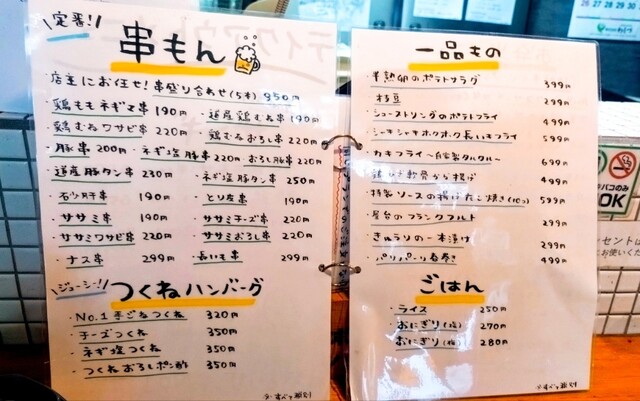 定番!!
串もん
・店主にお任せ!串盛り合わせ(5本) 850円
・鶏ももネギマ串 190円 ・道産鶏むね串 190円
・鶏むねワサビ串 220円 ・鶏むねおろし串 220円
・豚串 200円 ・ネギ塩豚串 220円 ・おろし豚串 220円
・道産豚タン串 230円 ・ネギ塩豚タン串 250円
・砂肝串 190円 ・とり皮串 190円
・ササミ串 190円 ・ササミチーズ串 220円
・ササミワサビ串 220円 ・ササミおろし串 220円
・ナス串 299円 ・長いも串 299円
ジューシー!!
つくねハンバーグ
・No.1 手ごねつくね 320円
・チーズつくね 350円
・ネギ塩つくね 350円
・つくねおろしポン酢 350円
すべて税別
一品もの
・半熟卵のポテトサラダ 399円
・枝豆 299円
・シューストリングのポテトフライ 499円
・シャキシャキホクホク長いもフライ 599円
・カキフライ〜自家製タルタル〜 699円
軟骨から揚げ 499円
・特製ソースの揚げたこ焼き(10コ) 599円
・屋台のフランクフルト 299円
・きゅうりの一本漬け 299円
・パリパリ春巻き 499円
ごはん
・ライス 250円
・おにぎり(塩) 270円
・おにぎり(梅) 280円
すべて税別
タバコのみ
OK